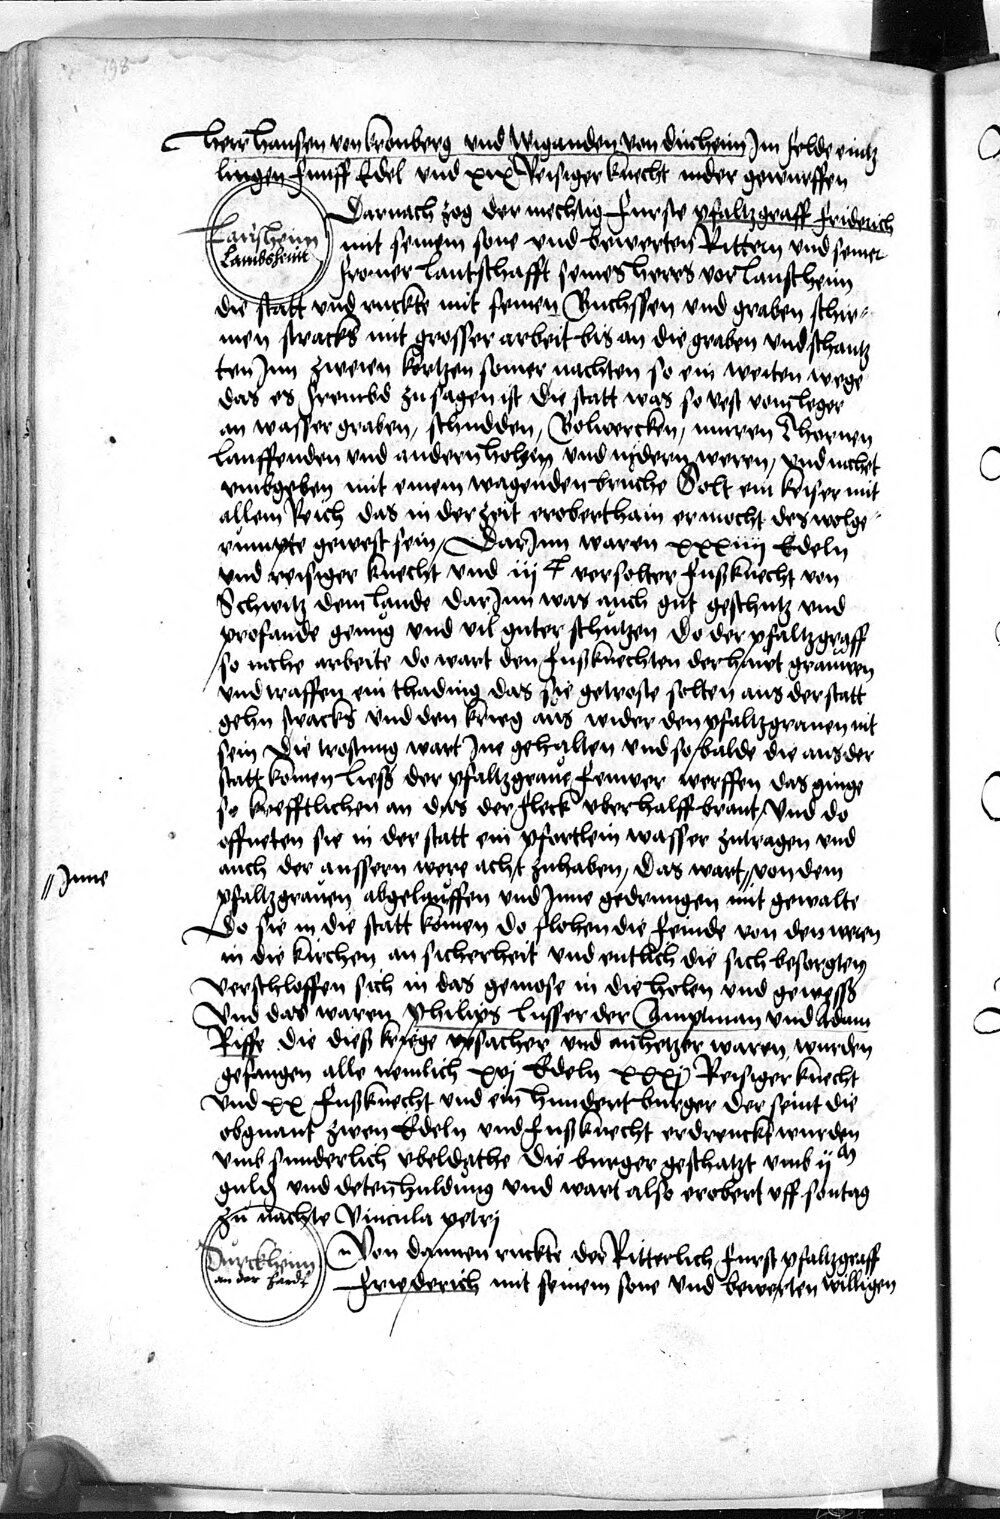 198
herr hansen von kronberg und Wiganden von dinheim Im felde eintz
lingen funff Edel und xix Reisiger knecht nider geworffen
Lansheim
Lambsheim
Darnach zog der mechtig furste pfaltzgraff friderich
mit seinem sone und bewerten Rittern und seiner
fromer lantschafft seines heres vor lanscheim
die statt und ruckte mit seinen Buchssen und graben schir
men stracks mit grosser arbeit bis an die graben und schantz
ten Inn zweien kortzen somer nachten so ein weiten wege
das es frembd zusagen ist die statt was so vest von leger
an wasser graben, schudden, Bolwercken, muren Thornen
lauffenden und andern holtzin und nydern weren, und nachet
umbgeben mit einem wagenden bruche Solt ein keiser mit
allem Reich das in der zeit erobert hain er mocht des wolge
rumpte gewest sein, DarInn waren xxxiiij Edeln
und reisiger knecht und iij c versolter fußknecht von
Schwitz dem lande DarInn was auch gut geschutz und
profande genug und vil guter schutzen Do der pfaltzgraff
so nahe arbeite do wart den fußknechten der hawt grauwen
und traffen ein thading das sie getroste solten aus der statt
gehn stracks und den krieg aus wider den pfaltzgrauen nit
sein Die trostung wart Ine gehalten und so balde die aus der
statt komen ließ der pfaltzgraue feuwer werffen das ginge
so krefftlichen an das der fleck uber halff brant, Und do
offneten sie in der statt ein pfortlein wasser zutragen und
auch der aussern were acht zuhaben, Das wart, von dem
// Inne
pfaltzgrauen abgelauffen und Inne gedrungen mit gewalte
Do sie in die statt komen do flohen die feinde von den weren
in die kirchen an sicherheit und entlich die sich besorgten
verschloffen sich in das gemose in die holen und gewesß
Und das waren Philips lusser der Amptman und Adam
Riffe die dieß kriege ursacher und anhetzer waren, wurden
gefangen alle nemlich xvj Edeln xxxj Reisiger knecht
und xx fußknecht und ein hundert burger der seint die
obgnant zwen Edeln und fußknecht erdrenckt wurden
umb sunderlich ubeldathe Die burger geschatzt umb ij m
guld und huldung und wart also erobert uff sontag
zu nachte Vincula petrj
Durckheim
an der hardt
Von dannen ruckte der Ritterlich furst pfaltzgraff
friederich mit seinem sone und bewerten willigen